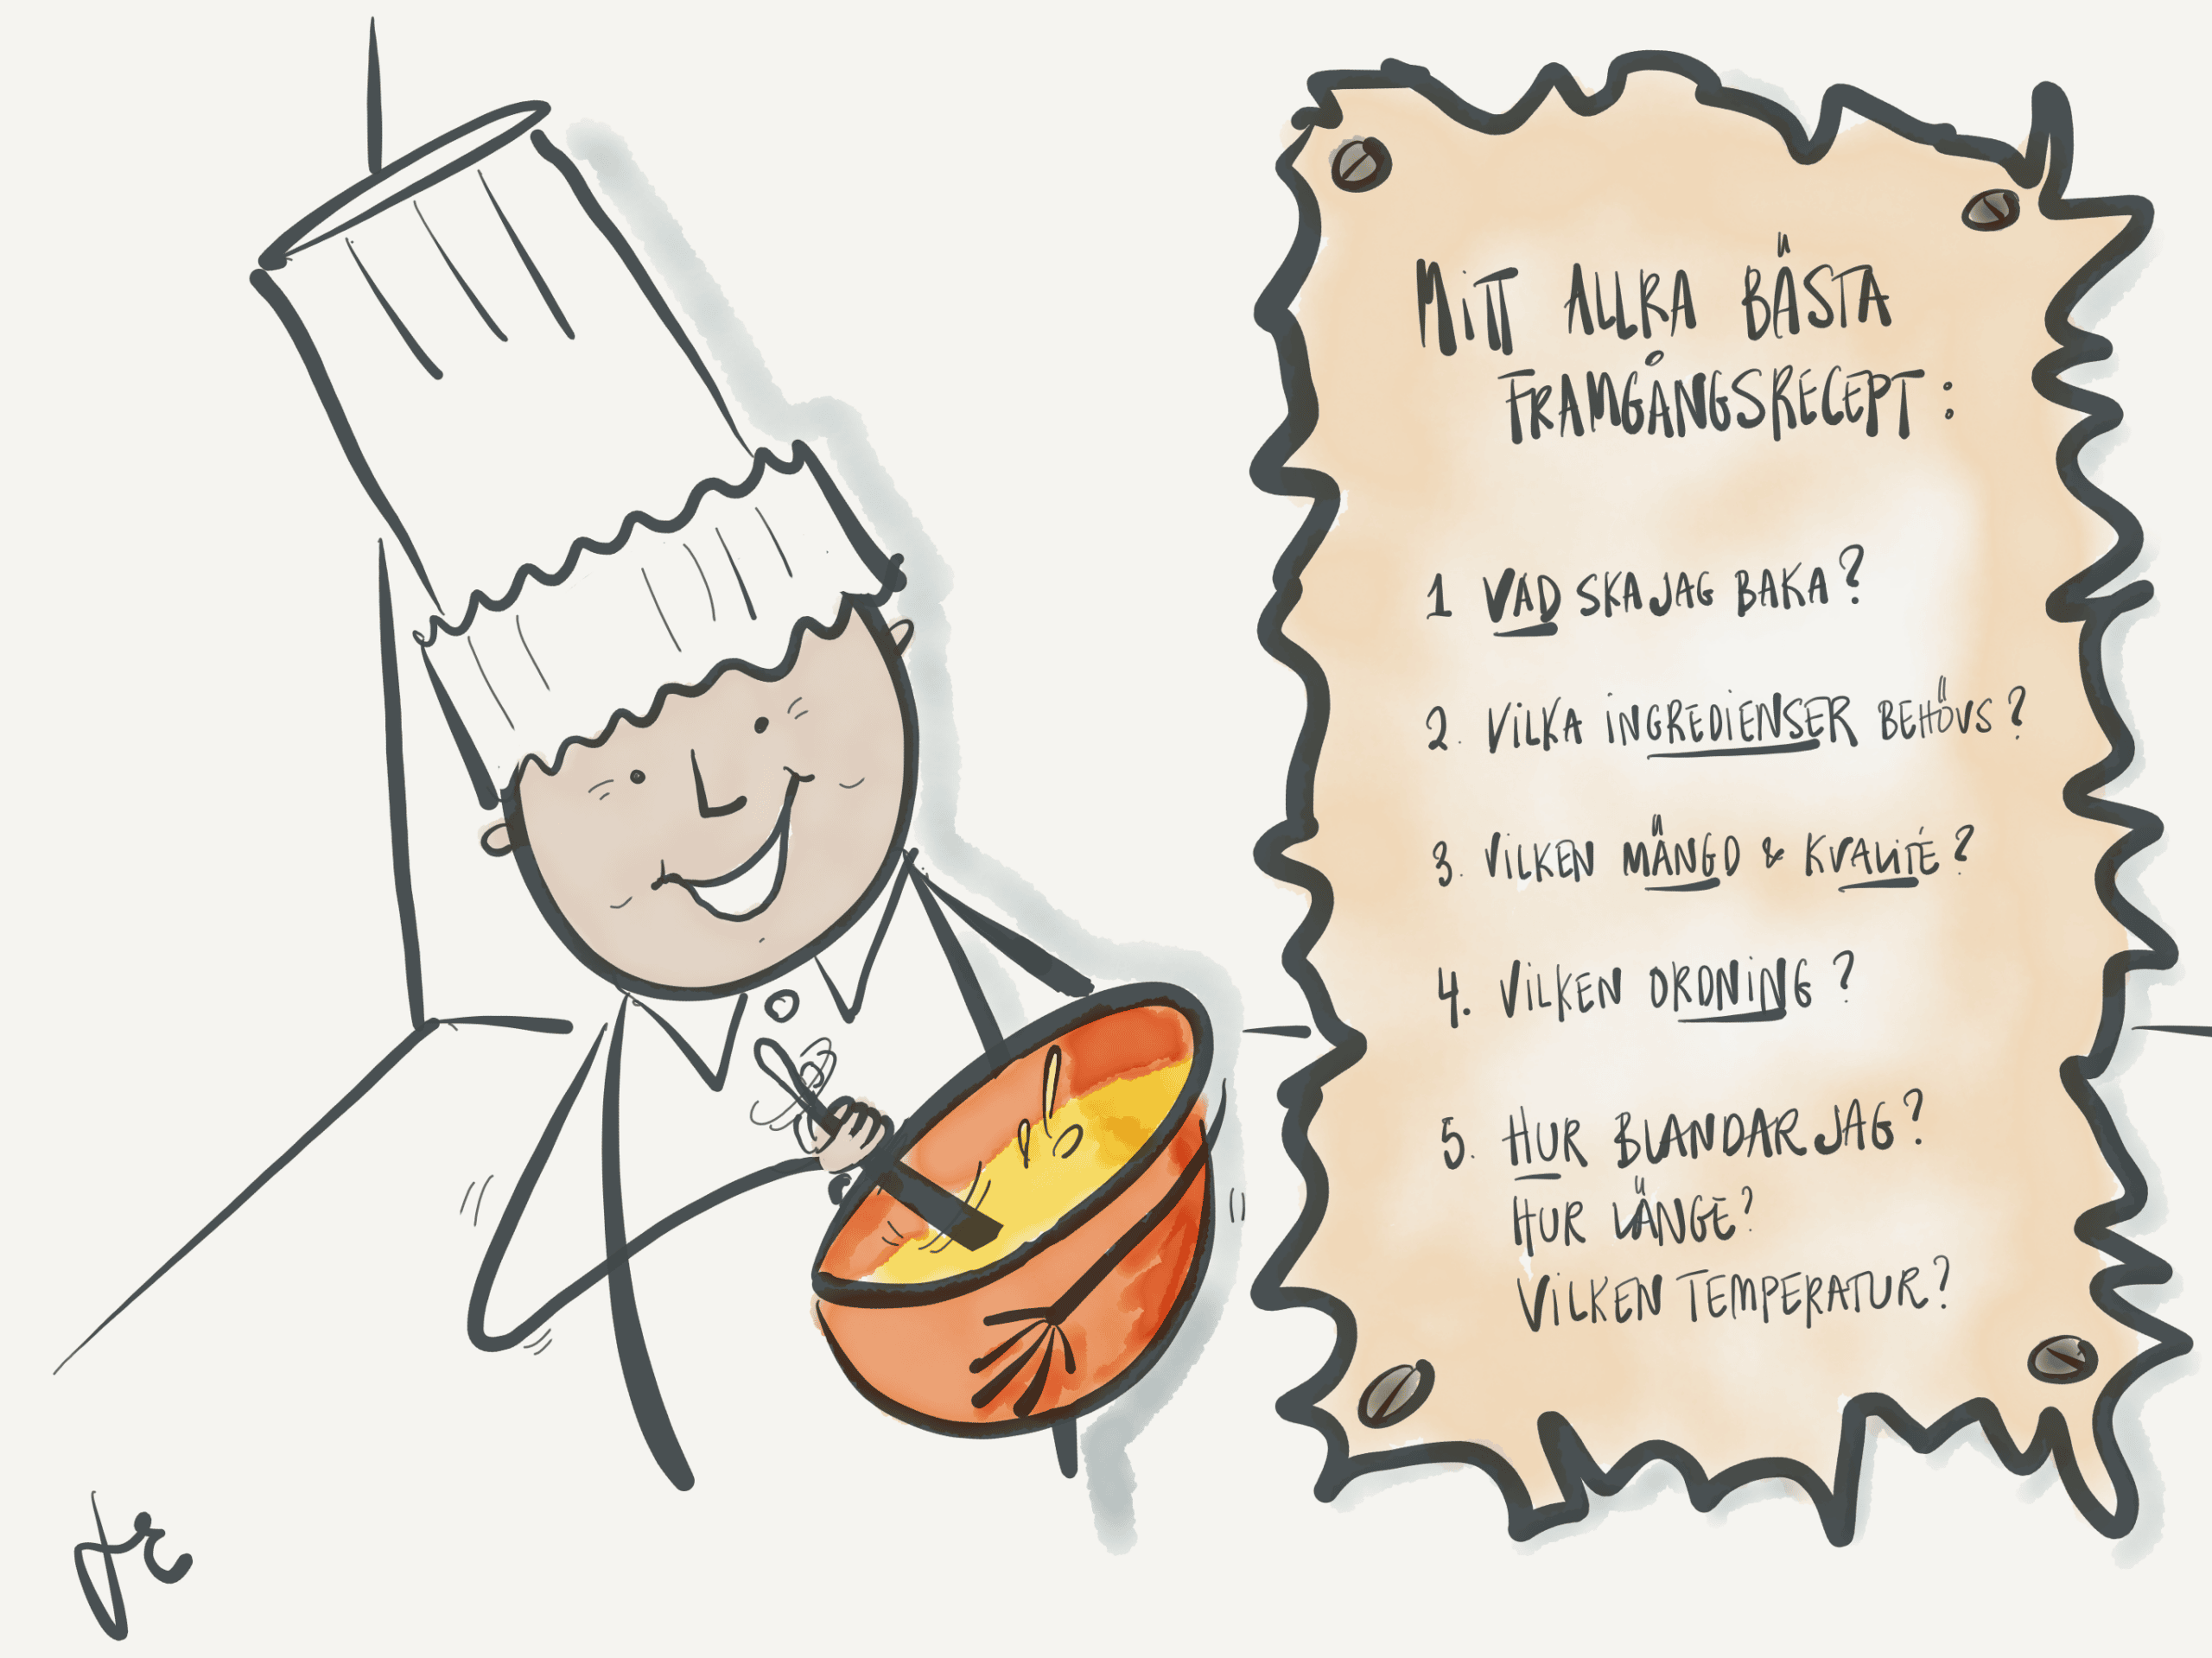 MITT ALLRA BÄSTA
FRAMGÅNGSRECEPT:
1 VAD SKA JAG BAKA?
2. VILKA INGREDIENSER BEHÖVS?
3. VILKEN MÄNGD & KVALITÉ?
4. VILKEN ORDNING?
5. HUR BLANDAR JAG?
HUR LÄNGE?
VILKEN TEMPERATUR?